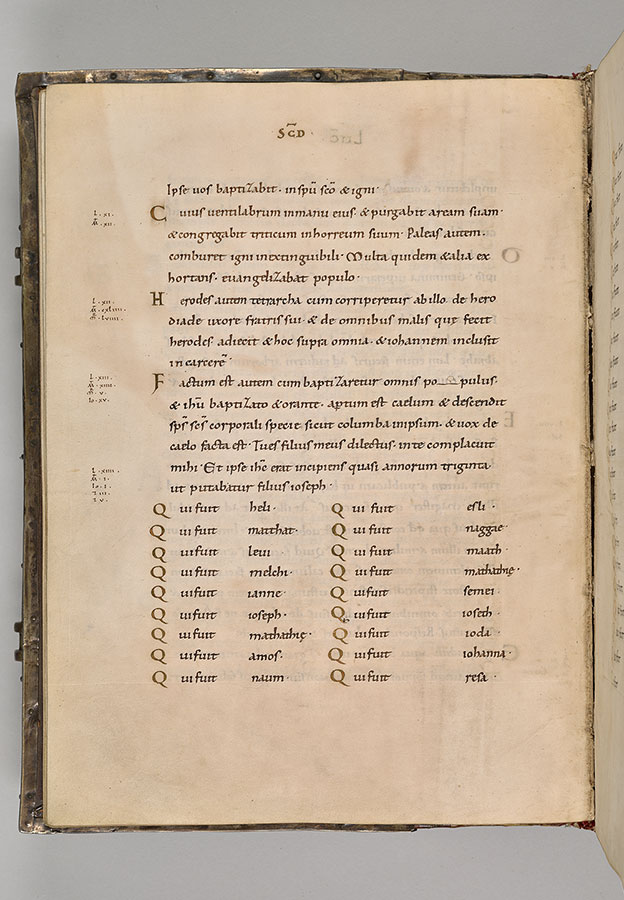 SC̅D·
Ipse uos baptizabit· in sp̅u sc̅o & igni·
Cuius uentilabrum in manu eius· & purgabit aream suam·
& congregabit triticum in horreum suum· Paleas autem·
comburet igni inextinguibili· Multa quidem & alia ex
hortans· euangelizabat populo·
Herodes autem tetrarcha cum corriperetur ab illo de hero
diade uxore fratris sui· & de omnibus malis quę fecit
herodes· adiecit & hoc supra omnia· & iohannem inclusit
in carcerē·
Factum est autem cum baptizaretur omnis po pulus·
& ih̅u baptizato & orante· aptum est caelum & descendit
sp̅s sc̅s corporali specie sicut columba in ipsum· & uox de
caelo facta est· Tu es filius meus dilectus· in te complacuit
mihi· Et ipse ih̅c erat incipiens quasi annorum triginta
ut putabatur filius ioseph·
Qui fuit heli· Qui fuit esli·
Qui fuit matthat· Qui fuit naggae·
Qui fuit leui Qui fuit maath·
Qui fuit melchi· Qui fuit mathathię·
Qui fuit ianne· Qui fuit semei·
Qui fuit ioseph· Qui fuit ioseth·
Qui fuit mathathię· Qui fuit ioda·
Qui fuit amos· Qui fuit iohanna·
Qui fuit naum Qui fuit resa·